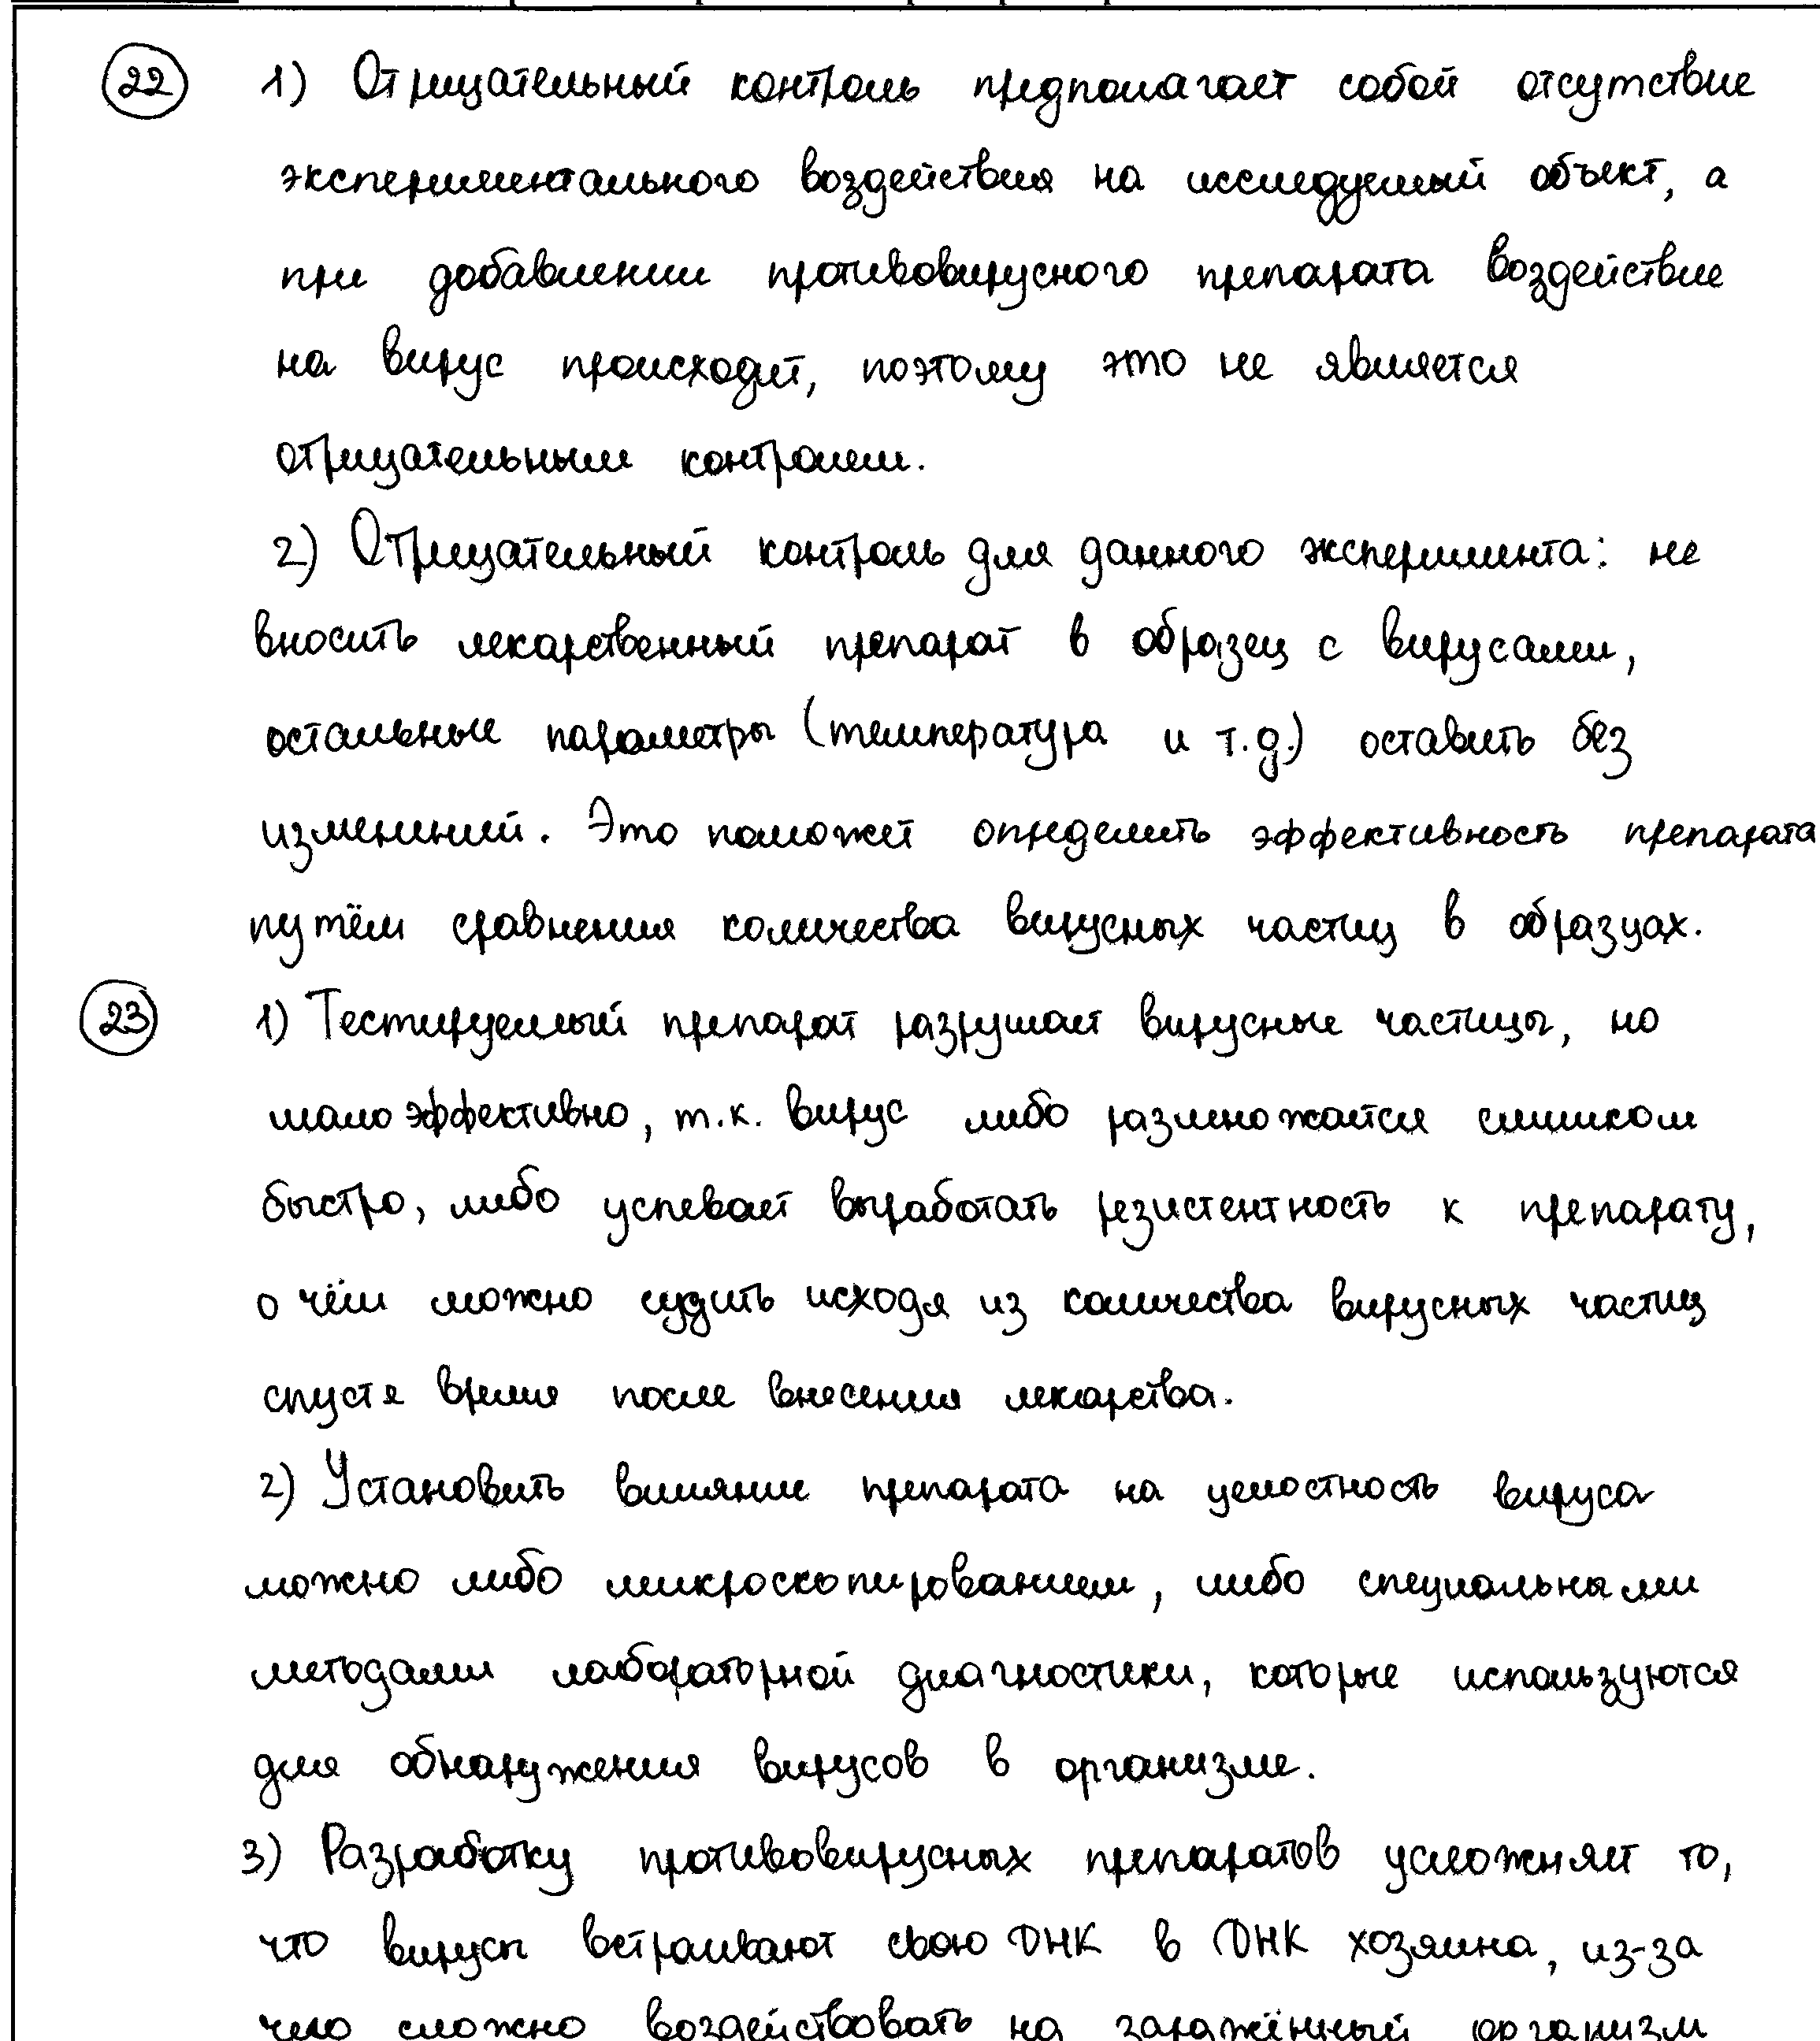 22 1) Отрицательный контроль предполагает собой отсутствие
экспериментального воздействия на исследуемый объект, а
при добавлении противовирусного препарата воздействие
на вирус происходит, поэтому это не является
отрицательным контролем.
2) Отрицательный контроль для данного эксперимента: не
вносить лекарственный препарат в образец с вирусами,
остальные параметры (температура и т.д.) оставить без
изменений. Это поможет определить эффективность препарата
путём сравнения количества вирусных частиц в образцах.
23 1) Тестируемый препарат разрушает вирусные частицы, но
мало эффективно, т.к. вирус либо размножается слишком
быстро, либо успевает выработать резистентность к препарату,
о чём можно судить исходя из количества вирусных частиц
спустя время после внесения лекарства.
2) Установить влияние препарата на целостность вируса
можно либо микроскопированием, либо специальными
методами лабораторной диагностики, которые используются
для обнаружения вирусов в организме.
3) Разработку противовирусных препаратов усложняет то,
что вирусы встраивают свою ДНК в ДНК хозяина, из-за
чего сложно воздействовать на заражённый организм